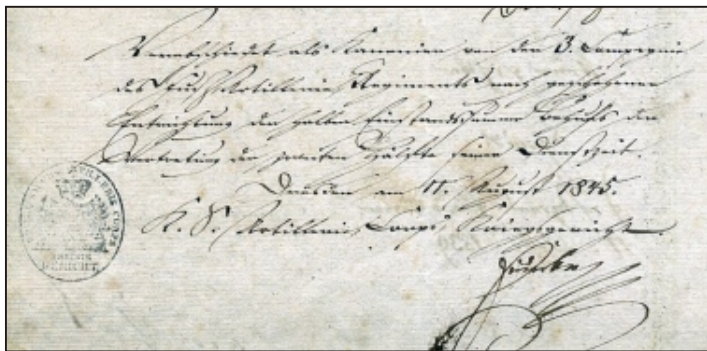 Verabschiedet als Kanonier von der 3. Compagnie
des Fuß Artillerie Regiments nach geschehener
Entrichtung der halben Einstandssumme behufs der
Vertretung der zweiten Hälfte seiner Dienstzeit.
Dresden am 11. August 1845.
K. S. Artillerie Corps Kriegsgericht.
ARTILLERIE CORPS
GERICHT.